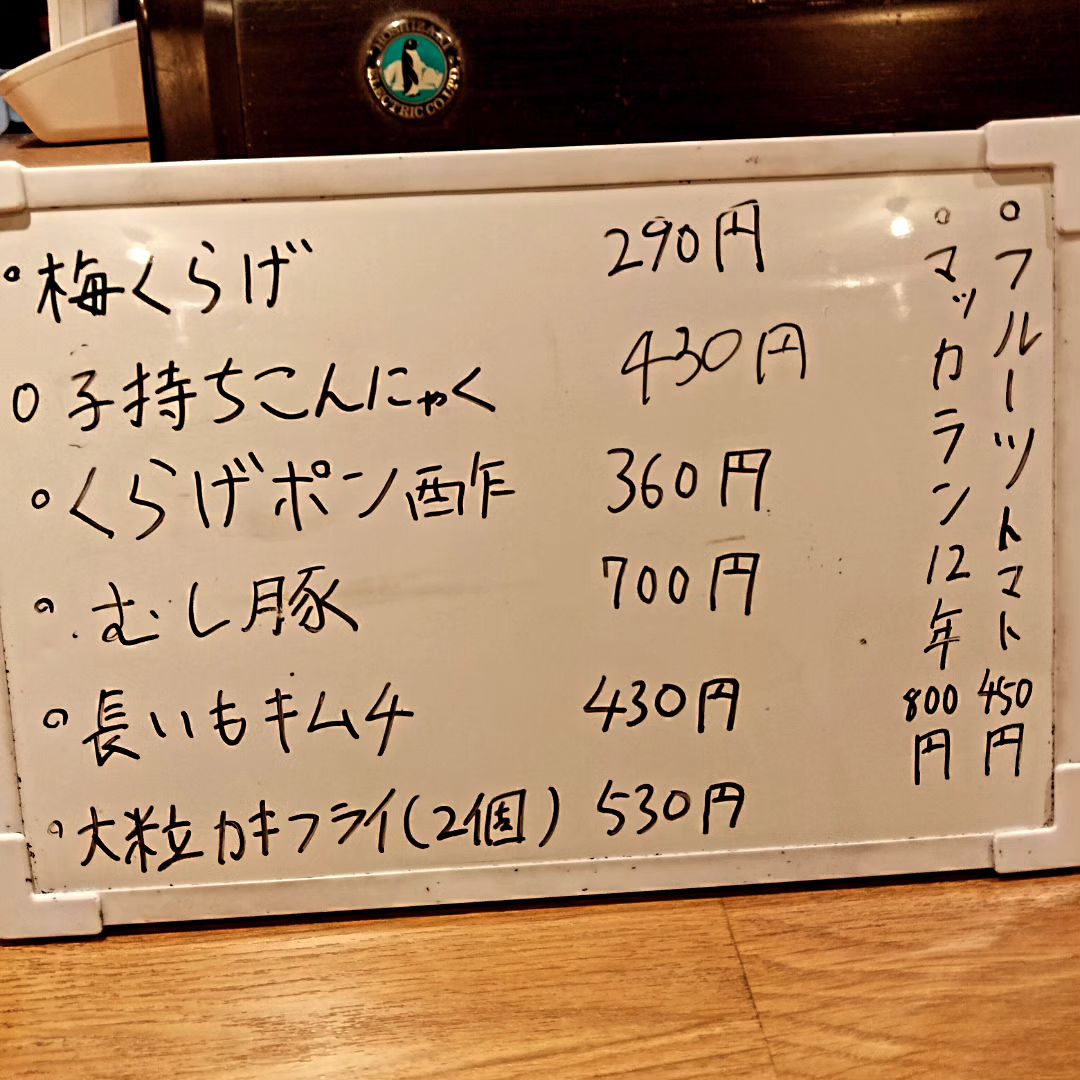 HOSHIZAKI
ELECTRIC CO.LTD
°梅くらげ 290円
○子持ちこんにゃく 430円
°くらげポン酢 360円
°むし豚 700円
°長いもキムチ 430円
°大粒カキフライ(2個) 530円
°フルーツトマト 450円
°マッカラン12年 800円